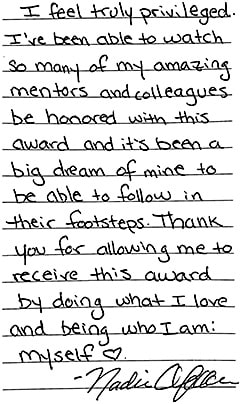 I feel truly privileged.
I've been able to watch
so many of my amazing
mentors and colleagues
be honored with this
award and it's been a
big dream of mine to
be able to follow in
their footsteps. Thank
you for allowing me to
receive this award
by doing what I love
and being who I am:
myself ♡.
-Nadia